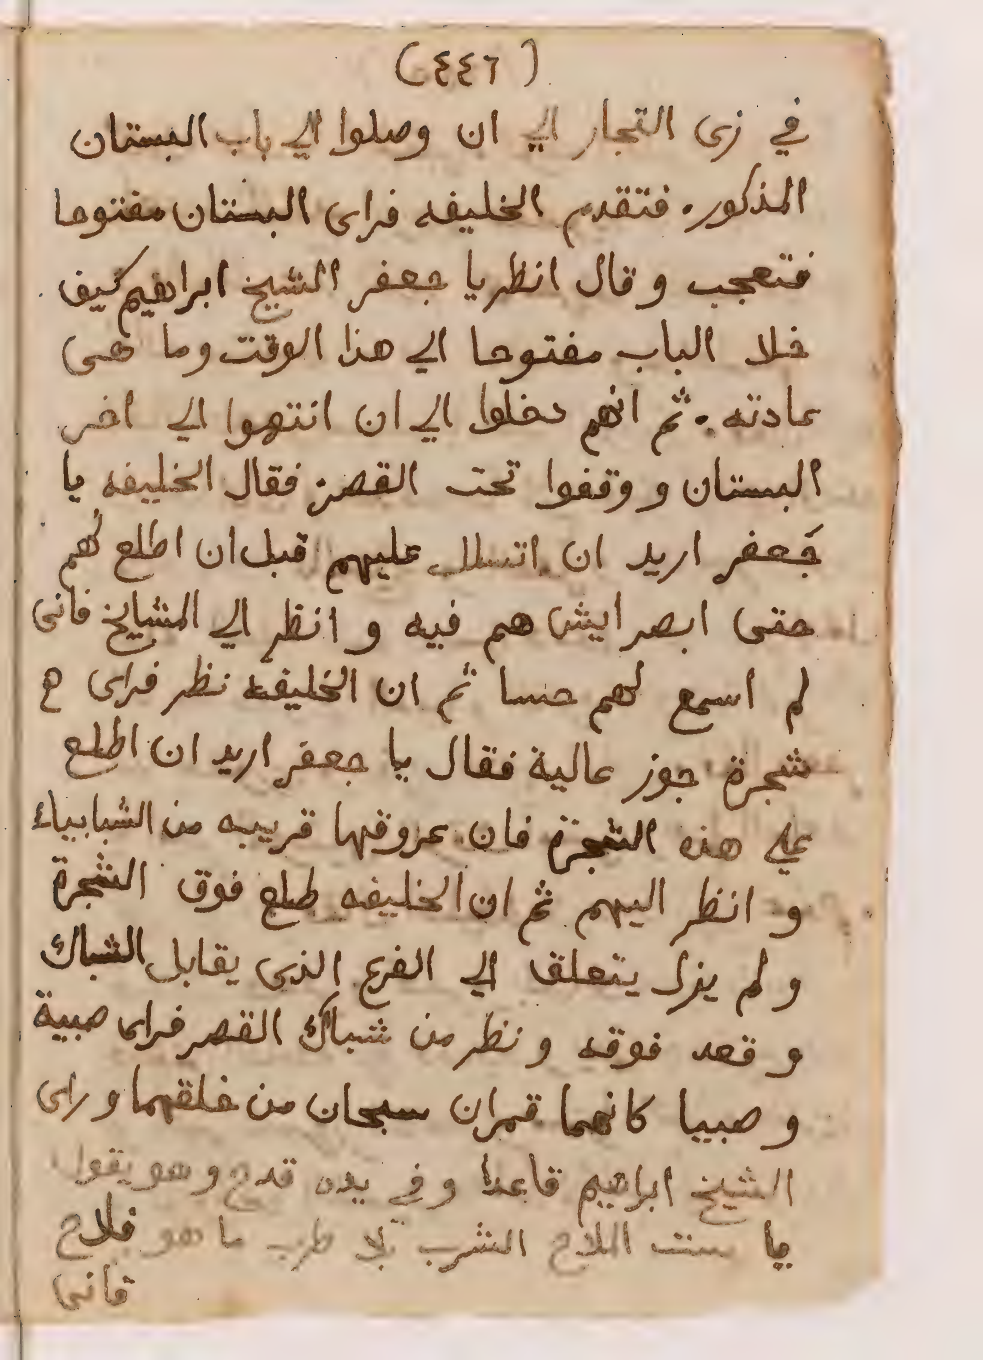 (٤٤٦)
في زى التجار الي ان وصلوا الي باب البستان
المذكور. فتقدم الخليفه فراى البستان مفتوحا
فتعجب و قال انظر يا جعفر الشيخ ابراهيم كيف
خلا الباب مفتوحا الي هذا الوقت وما هى
عادته. ثم انهم دخلوا الي ان انتهوا الي اخر
البستان و وقفوا تحت القصر. فقال الخليفه يا
جعفر اريد ان اتسلل عليهم قبل ان اطلع لهم
حتى ابصر ايش هم فيه و انظر الي المشايخ فانى
لم اسمع لهم حسا ثم ان الخليفه نظر فراى
شجرة جوز عالية فقال يا جعفر اريد ان اطلع
علي هذه الشجرة فان عروقها قريبه من الشبابيك
و انظر اليهم ثم ان الخليفه طلع فوق الشجرة
و لم يزل يتعلق الي الفرع الذى يقابل الشباك
و قعد فوقه و نظر من شباك القصر فراى صبية
و صبيا كانهما قمران سبحان من خلقهما و راى
الشيخ ابراهيم قاعدا و في يده قدح و هو يقول
يا ست الملاح الشرب بلا طرب ما هو فلاح
فانى